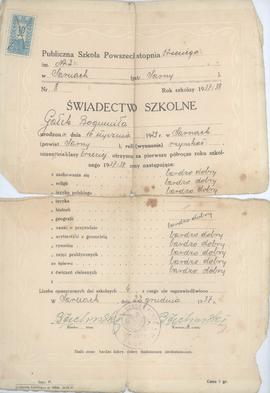 Publiczna Szkoła Powszechna stopnia trzeciego
im. Nr 2
w Sarnach pow. Sarny
Nr 8 Rok szkolny 1937/38
ŚWIADECTWO SZKOLNE
Gałek Bogumiła
urodzon dnia stycznia w Sarnach
(powiat Sarny), religii (wyznania) rzymskoł.
uczeń(uczennica) klasy trzeciej otrzymuje za pierwsze półrocze roku szkol-
nego 1937/38 oceny następujące:
z zachowania się bardzo dobry
z religii bardzo dobry
z języka polskiego bardzo dobry
z języka
z historii
z geografii
z nauki o przyrodzie bardzo dobry
z arytmetyki z geometrią bardzo dobry
z rysunku bardzo dobry
z zajęć praktycznych bardzo dobry
ze śpiewu bardzo dobry
z ćwiczeń cielesnych bardzo dobry
Liczba opuszczonych dni szkolnych 6 z czego nie usprawiedliwiono
w Sarnach dn. 22 grudnia 1937 r.
Skala ocen: bardzo dobry, dobry, dostateczny, niedostateczny.
Cena 5 gr.